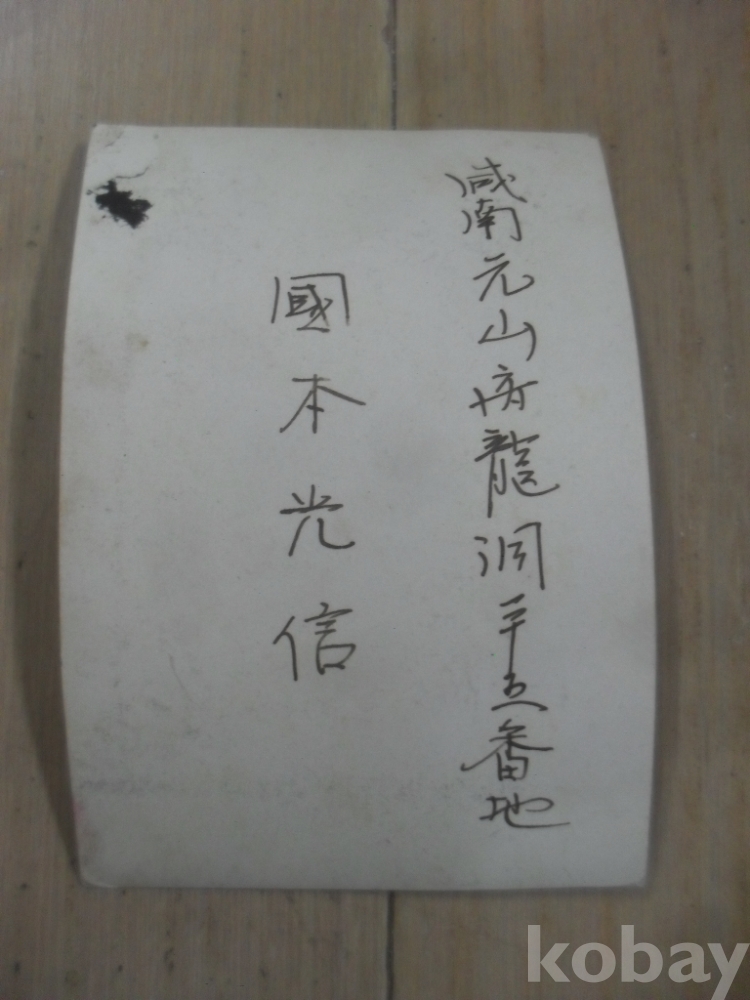 咸南元山府龍洞二十五番地
國本光信
kobay